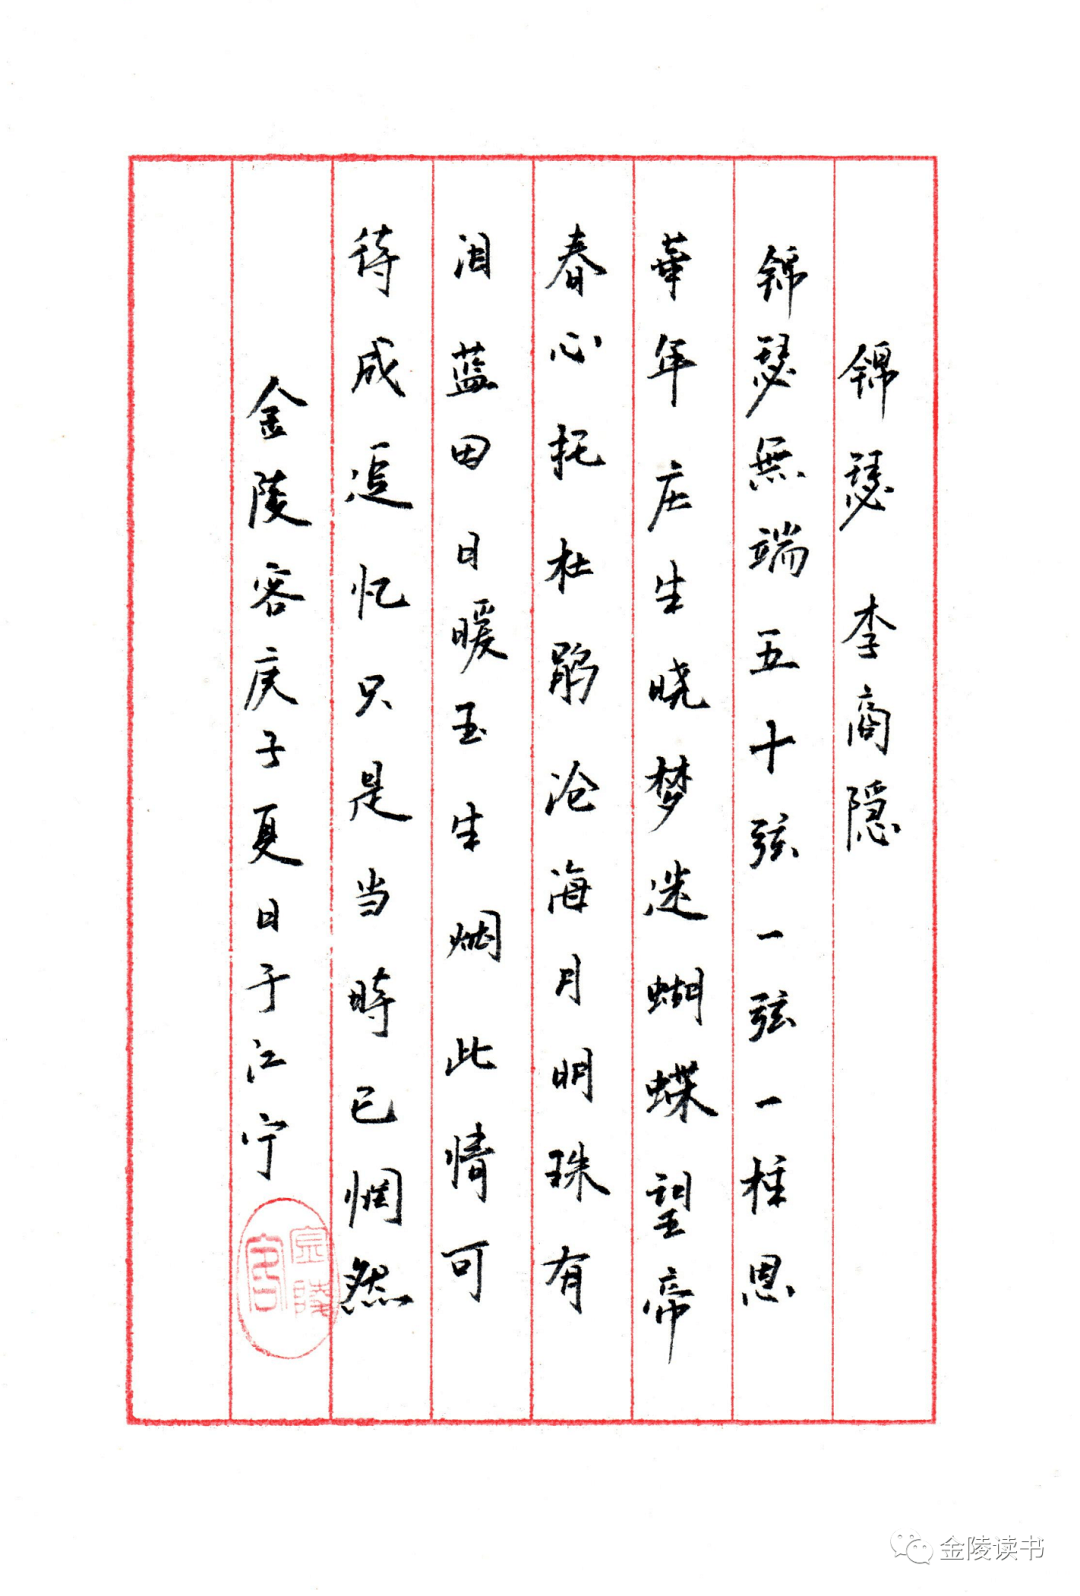 锦瑟 李商隐
锦瑟無端五十弦一弦一柱思
華年庄生晓梦迷蝴蝶望帝
春心托杜鹃沧海月明珠有
泪蓝田日暖玉生烟此情可
待成追忆只是当時已惘然
金陵客庚子夏日于江宁
金陵客
金陵读书